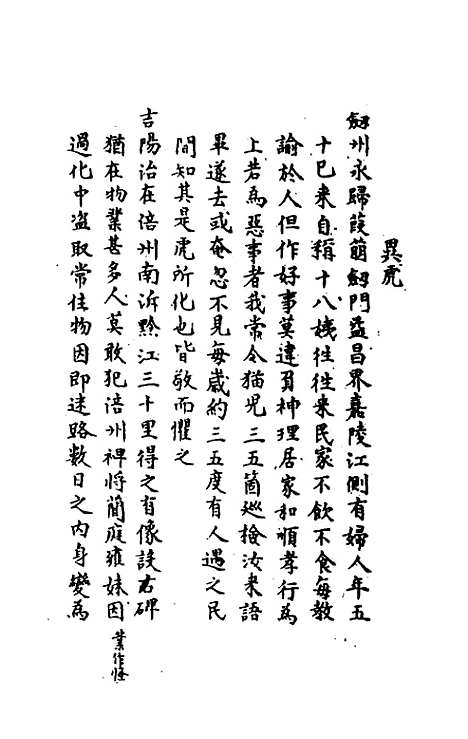 異虎
劔州永歸葭萌劔門益昌界嘉陵江側有婦人年五
十巳来自稱十八姨徃徃来民家不飲不食每教
諭於人但作好事莫違負神理居家和順孝行為
上若為惡事者我常令猫児三五箇廵檢汝来語
畢遂去或奄忽不見每歳約三五度有人遇之民
間知其是虎所化也皆敬而懼之
吉陽治在涪州南沂黔江三十里得之有像設古碑
猶在物業甚多人莫敢犯涪州裨將藺庭雍妹因
過化中盗取常住物因即迷路数日之内身變為
業作恠